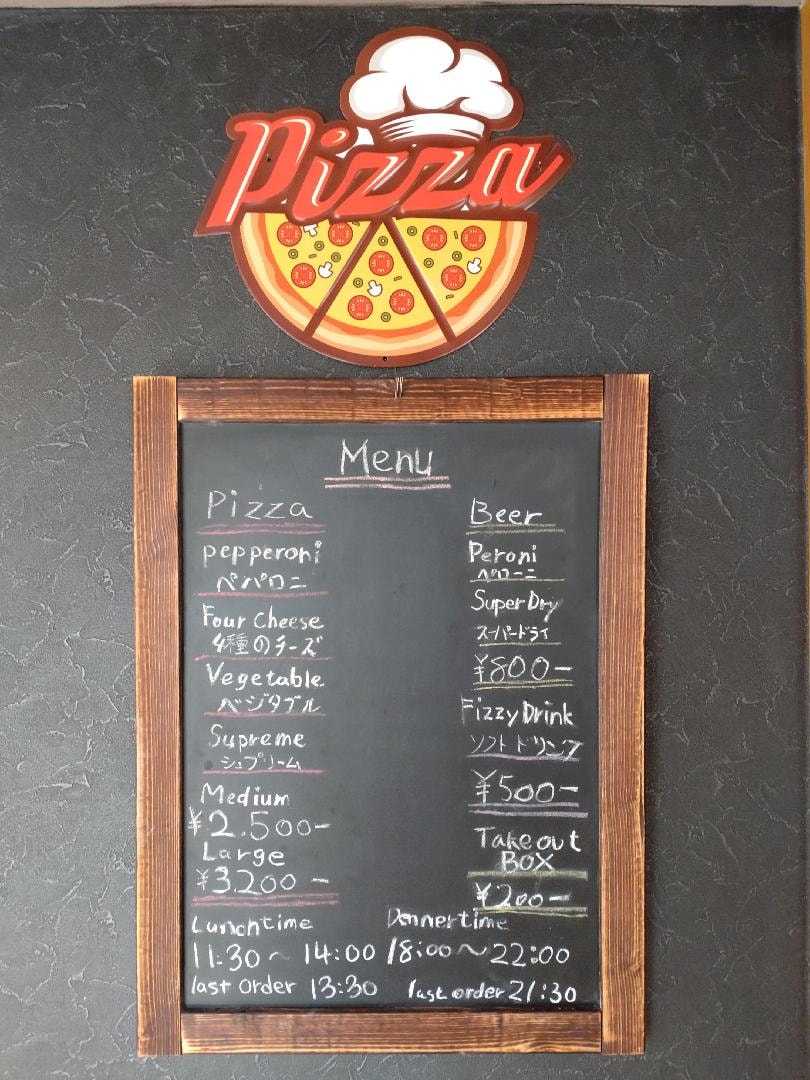 Pizza
Menu
Pizza
pepperoni
ペパロニ
Four Cheese
4種のチーズ
Vegetable
ベジタブル
Supreme
シュプリーム
Medium
¥2.500-
Large
¥3.200-
Beer
Peroni
ペローニ
Super Dry
スーパードライ
¥800-
Fizzy Drink
ソフトドリンク
¥500-
Takeout
BOX
¥200-
Lunchtime
11:30~14:00
last order 13:30
Donnertime
18:00~22:00
last order 21:30